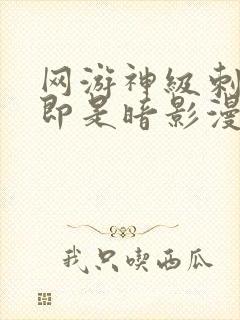 网游神级刺
即是暗影漫
我只喫西瓜